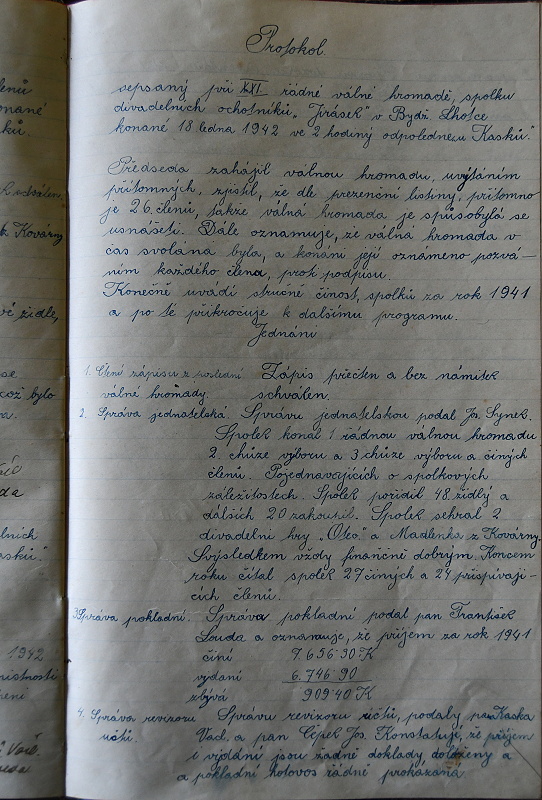 Protokol.
sepsaný při XXI. řádné válné hromadě, spolku
divadelních ochotníků „Jirásek" v Bydž. Lhotce
konané 18 ledna 1942 ve 2 hodiny odpoledne u Kasků."
Předseda zahájil válnou hromadu, uvýtáním
přítomných, zjistil, že dle prezenční listiny, přítomno
je 26 členů, takže válná hromada je způsobylá se
usnášeti. Dále oznamuje, že válná hromada v
čas svolána byla, a konání její oznámeno pozvá-
ním každého člena, proti podpisu.
Konečně uvádí stručně činost, spolků za rok 1941
a po té přikročuje k dalšímu programu.
Jednání
1. Čtení zápisu z poslední Zápis přečten a bez námitek
válné hromady. schválen.
2. Správa jednatelská. Správu jednatelskou podal Jos. Synek.
Spolek konal 1 řádnou válnou hromadu
2 chůze výboru a 3 chůze výboru a činých
členů. Pojednavajících o spolkových
záležitostech. Spolek pořídil 48 židlý a
dálších 20 zakoupil. Spolek sehrál 2
divadelní hry „Otec" a Madlenka z Kovárny.
S výsledkem vždy finančně dobrým. Koncem
roku čítal spolek 27 činých a 24 přispívají-
cích členů.
3. Správa pokladní. Správu pokladní podal pan František
Louda a oznamuje, že příjem za rok 1941
činí 7.656·30 K
vydání 6.746·90
zbývá 909·40 K
4. Správa revizorů Správu revizorů účtů, podaly pan Kaska
účtů. Václ. a pan Cépek Jos. Konstatuje, že příjem
i výdání jsou řádně doklady, doloženy a
a pokladní hotovos řádně prokázána.
členů
onané
ků.
Kovárny
vé židle,
se
což bylo
a.
da
lních
askú."
1942
nistnosti
ení